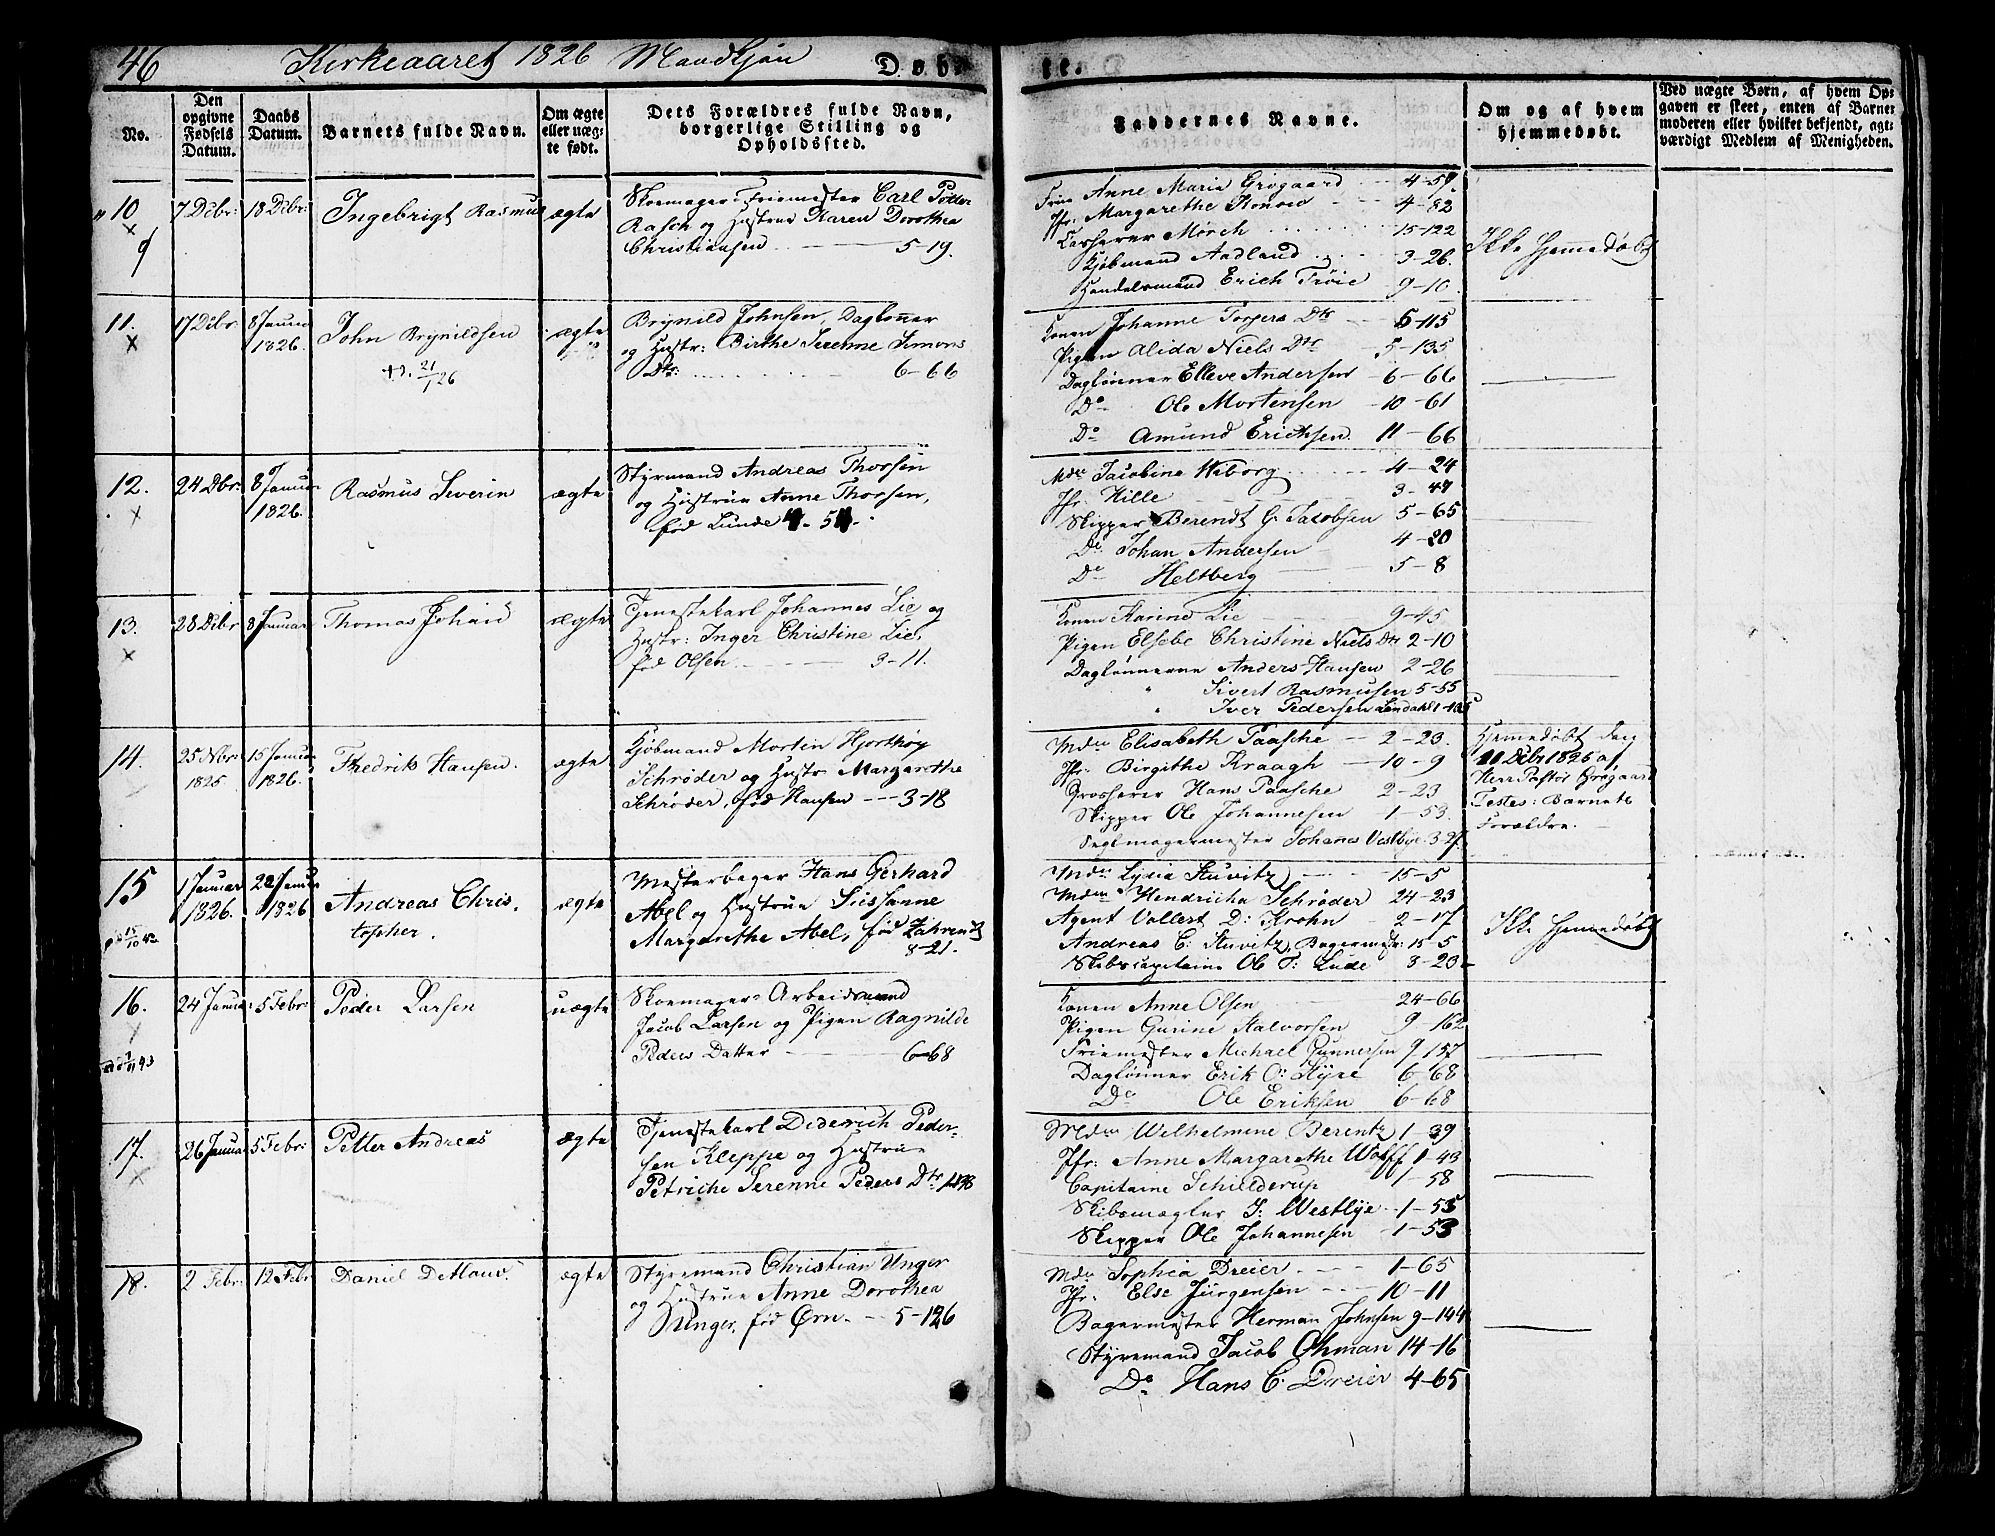 46 Kirkeaaret 1826 Mandkjøn Døbte.
No.
Den opgivne Fødsels Datum.
Daabs Datum.
Barnets fulde Navn.
Om ægte eller uægte født.
Dets Forældres fulde Navn, borgerlige Stilling og Opholdssted.
Faddernes Navne.
Om og af hvem hjemmedøbt.
Ved uægte Børn, af hvem Opgaven er skeet, enten af Barnemoderen eller hvilket bekjendt, agtværdigt Medlem af Menigheden.
10 7 Debr: 18 Debr: Ingebrigt Rasmus ægte
Skoemager-Friemester Carl Peter
Rasch og Hustrue Karen Dorothea
Christiansen 5-19.
Frue Anne Maria Grøgaard 4-59
Jfr: Margarethe Konow 4-82
Casserer Mörch 15-122
Kjøbmand Aadland 3-26.
Handelsmand Erich Trøie 9-10
Ikke Hjemmedøbt
11. 17 Debr 8 Januar 1826. John Brynildsen ægte
21/1 26
Brynild Johnsen, Daglønner
og Hustr: Birthe Serenne Simons
Dtr: 6-66
Konen Johanne Torgers Dtr 6-115
Pigen Alida Niels Dtr 5-135
Daglønner Elleve Andersen 6-66
Do Ole Mortensen 10-61
Do Amund Erichsen. 11-66
12. 24 Dbr: 8 Januar 1826. Rasmus Severin ægte
Styrmand Andreas Thorsen
og Hustrue Anne Thorsen,
fød Lunde 4-54.
Mdm Jacobine Wiborg 4-24
Jfr: Hille 3-47
Skipper Berendt G. Jacobsen 5-65
Do Johan Andersen 4-20
Do Heltberg 5-8
13. 28 Debr 8 Januar Thomas Johan ægte
Tjenestekarl Johannes Lie og
Hustr: Inger Christine Lie,
fød Olsen 3-11.
Konen Karine Lie 9-45
Pigen Elsebe Christine Niels Dtr 2-10
Daglønnerne Anders Hansen 2-26
" Sivert Rasmusen 5-55
" Iver Pedersen Lendahl
14. 25 Nbr: 1825 15 Januar 1826. Fredrik Hansen. ægte
Kjøbmand Mortin Hjorthøy
Schrøder og Hustr Margarethe
Schrøder, fød Hansen 3-18
Mdm Elisabeth Paasche 2-23.
Jfr: Birgithe Kraagh 10-9
Grosserer Hans Paasche 2-23
Skipper Ole Johannesen 1-53.
Seglmagermester Johanes Vestlye 3-27.
Hjemmedøbt den
20 Debr 1825 af
Herr Pastor Grøgaard
Testes: Barnets
Forældre.
15 1 Januar 1826. 22 Januar 1826 Andreas Christopher. ægte
Mesterbager Hans Gerhard
Abel og Hustrue Sussanne
Margarethe Abel, fød Zahrendtz
8-21.
Mdm Lysia Stuvitz 15-5
Mdm Hendricha Schrøder 24-23
Agent Vollert D: Krohn 2-17
Andreas C: Stuvitz, Bagermestr: 15-5
Skibscapitaine Ole T: Lude 8-20
Ikke Hjemmedøbt
16. 24 Januar 5 Febr: Peder Larsen uægte
Skoemager-Arbeidsmand
Jacob Larsen og Pigen Ragnilde
Peders Datter 6-68
Konen Anne Olsen 24-66
Pigen Gurine Halvorsen 9-162
Friemester Michael Gunnersen 9-157
Daglønner Erik O: Hyre 6-68
Do Ole Eriksen 6-68
17. 26 Januar 5 Febr: Petter Andreas ægte
Tjenestekarl Diderich Pedersen
Kleppe og Hustrue
Petriche Serenne Peders Dtr
Mdm Wilhelmine Berentz 1-39
Jfr: Anne Margarethe Wolff 1-43
Capitaine Schielderup 1-58
Skibsmægler J: Westlye 1-53
Skipper Ole Johannesen 1-53
18. 2 Febr: 12 Febr Daniel Detlow. ægte
Styrmand Christian Unger
og Hustrue Anne Dorothea
Unger, fød Ørn. 5-126
Mdm Sophia Dreier 1-65
Jfr: Else Jürgensen 10-11
Bagermester Herman Johnsen 9-144
Styrmand Jacob Ohman 14-16
Do Hans C: Dreier 4-65